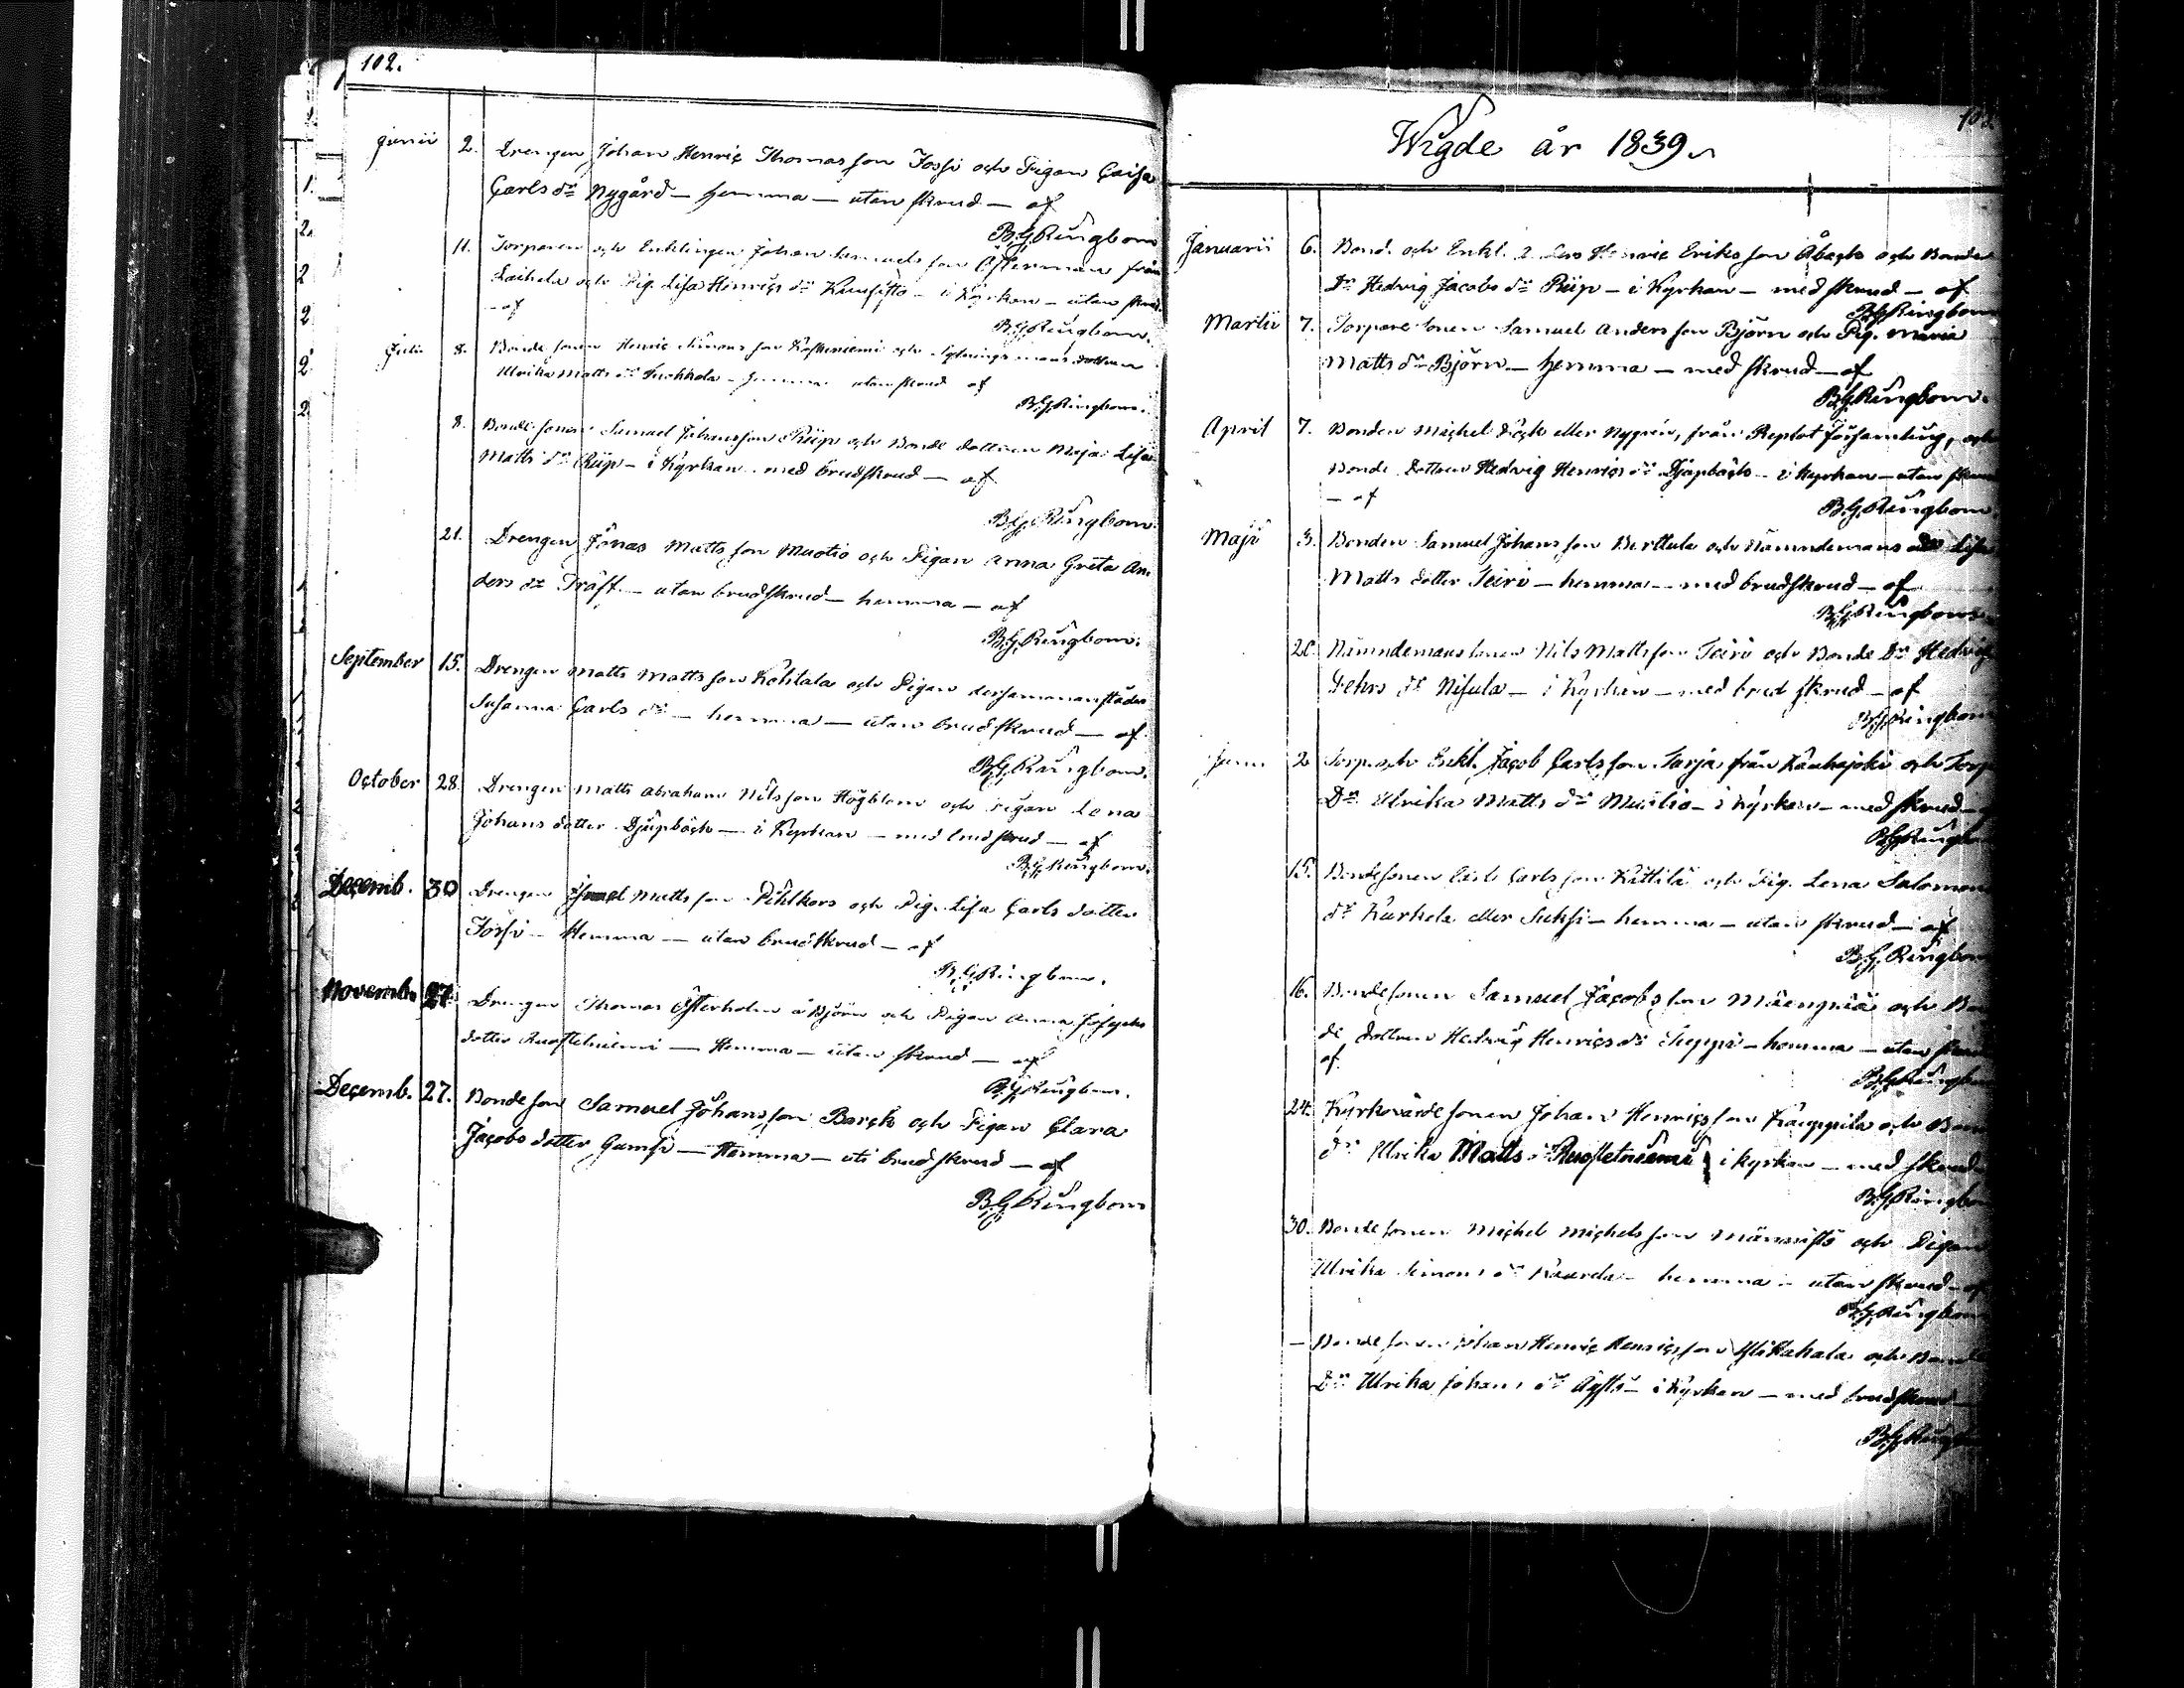 102.
Junii 2. Drengen Johan Henric Thomas son Jossi och Pigan Caisa
Carls dr Nygård – hemma – utan skrud – af
B.G. Ringbom
11. Torparen och Enklingen Johan Samuels son Osterman från
Laihela och Pig. Lisa Henrics dr – i Kyrkan – utan skrud
– af
B.G. Ringbom.
Julii 8. Bonde sonen Henric Simons son Koskeniemi och dottren
Ulrika Matts dr – hemma utan skrud af
B.G. Ringbom.
8. Bonde sonen Samuel Johansson Riip och Bonde dottren Maja Lisa
Matts dr Riip – i Kyrkan med brudskrud – af
B.G. Ringbom.
21. Drengen Jonas Matts son Muotio och Pigan Anna Greta An
ders dr Träff – utan brudskrud – hemma – af
B.G. Ringbom.
September 15. Drengen Matts Matts son Kohtala och Pigan dersammanstädes
Susanna Carls dr – hemma – utan brudskrud – af
B.G. Ringbom.
October 28. Drengen Matts Abraham Nils son Högblom och Pigan Lena
Johans dotter Djupbäck – i Kyrkan – med brudskrud – af
B.G. Ringbom.
Decemb. 30 Drengen Matts son Pihlkors och Pig. Lisa Carls dotter
Jossi – Hemma – utan brudskrud – af
B.G. Ringbom.
Novemb. 27 Drengen Thomas Österholm å Björn och Pigan Anna Josephs
dotter – Hemma – utan skrud – af
B.G. Ringbom.
Decemb. 27. Bonde son Samuel Johans son Barck och Pigan Clara
Jacobs dotter Gumsi – Hemma – uti brudskrud – af
B.G. Ringbom
Wigde år 1839.
Januarii 6. Bond. och Enkl. Henric Eriks son Åback och Bonde
Dr Hedvig Jacobs dr Riip – i Kyrkan – med skrud – af
B.G. Ringbom
Martii 7. Torpare sonen Samuel Anders son Björn och Pig. Maria
Matts dr Björn – hemma – med skrud – af
B.G. Ringbom.
April 7. Bonden Michel eller Nygrén, från Replot församling, och
Bonde Dottren Hedvig Henrics dr Djupbäck – i Kyrkan – utan skrud
– af
B.G. Ringbom.
Maji 3. Bonden Samuel Johans son Berttula och Nämndemans Lisa
Matts dotter Teiri – hemma – med brudskrud – af
B.G. Ringbom
20. Nämndemans sonen Nils Matts son Teiri och Bonde Dr Hedvig
Pehrs dr Nisula – i Kyrkan – med brud skrud – af
B.G. Ringbom
Junii 2 Torp. och Enkl. Jacob Carls son Sarja från Kauhajoki och Torp
Dr Ulrika Matts dr – i Kyrkan – med skrud –
B.G. Ringbom
15. Bonde sonen Carls son Kättilä och Pig. Lena Salomons
dr Kurhela eller – hemma – utan skrud – af
B.G. Ringbom
16. Bonde sonen Samuel Jacobs son Mäenpää och Bon
de dottren Hedvig Henrics dr Seppi – hemma – utan skrud
af
B.G. Ringbom
24. Kyrkovärde sonen Johan Henrics son Kauppila och Bond
dr Ulrika Matts dr Ruostetniemi i kyrkan – med skrud
B.G. Ringbom
30. Bonde sonen Michel Michels son Männistö och Pigan
Ulrika Simons dr – hemma – utan skrud – af
B.G. Ringbom
– Bonde sonen Johan Henric Henrics son och Bonde
Dr Ulrika Johans dr – i Kyrkan – med brudskrud –
B.G. Ringbom